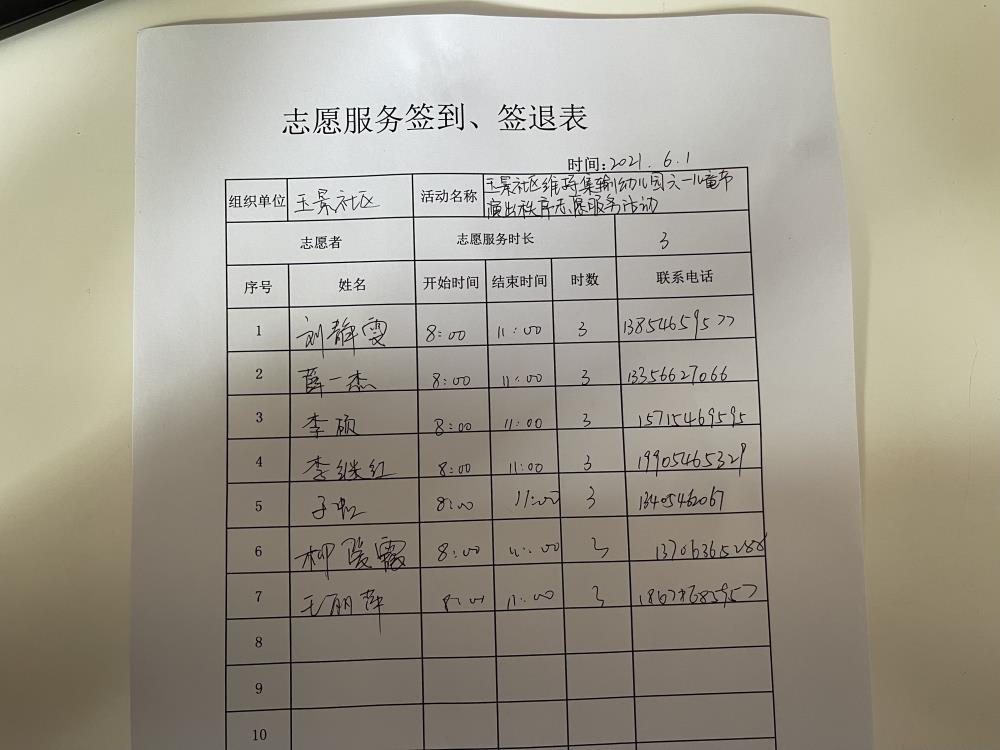 志愿服务签到、签退表
时间:2021.6.1
组织单位 玉景社区 活动名称 玉景社区维持集输幼儿园六一儿童节
演出秩序志愿服务活动
志愿者 志愿服务时长 3
序号 姓名 开始时间 结束时间 时数 联系电话
1 刘静雯 8:00 11:00 3 13854659577
2 薛一杰 8:00 11:00 3 13356627066
3 李硕 8:00 11:00 3 15715469595
4 李继红 8:00 11:00 3 19905465329
5 8:00 11:00 3
6 柳霞 8:00 11:00 3
7 王丽萍 8:00 11:00 3
8
9
10